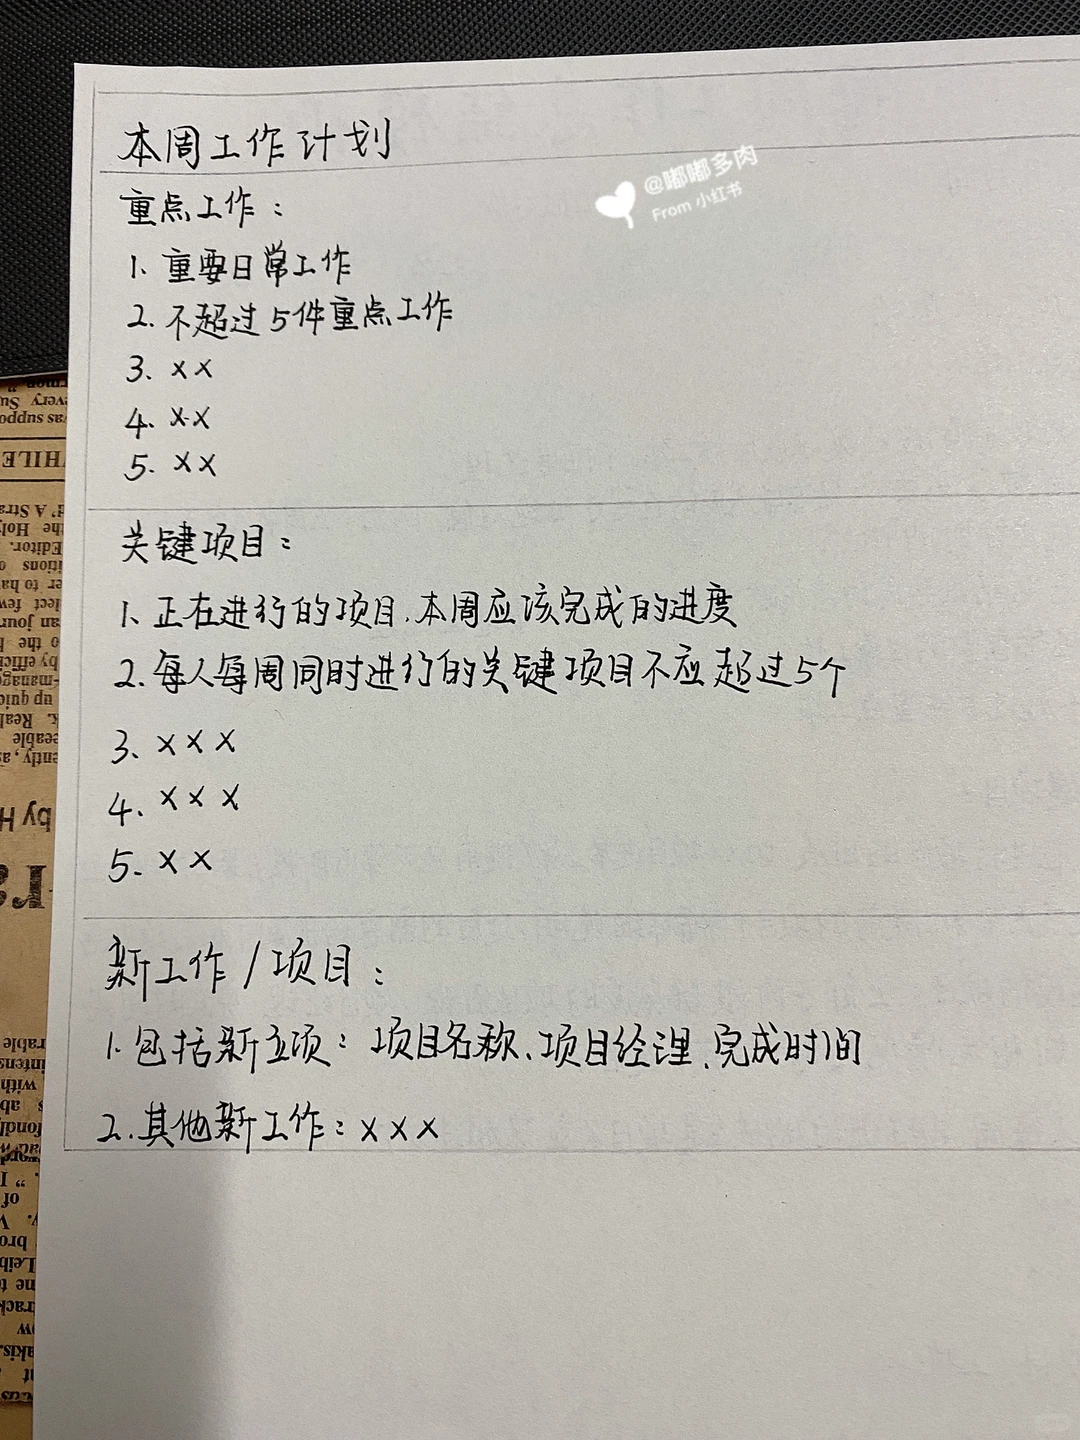 本周工作计划
@嘟嘟多肉
From 小红书
重点工作：
1、重要日常工作
2. 不超过5件重点工作
3、××
4、××
5、××
关键项目：
1、正在进行的项目,本周应该完成的进度
2、每人每周同时进行的关键项目不应超过5个
3、×××
4、×××
5、××
新工作/项目：
1、包括新立项：项目名称、项目经理、完成时间
2、其他新工作：×××
WHILE
by H